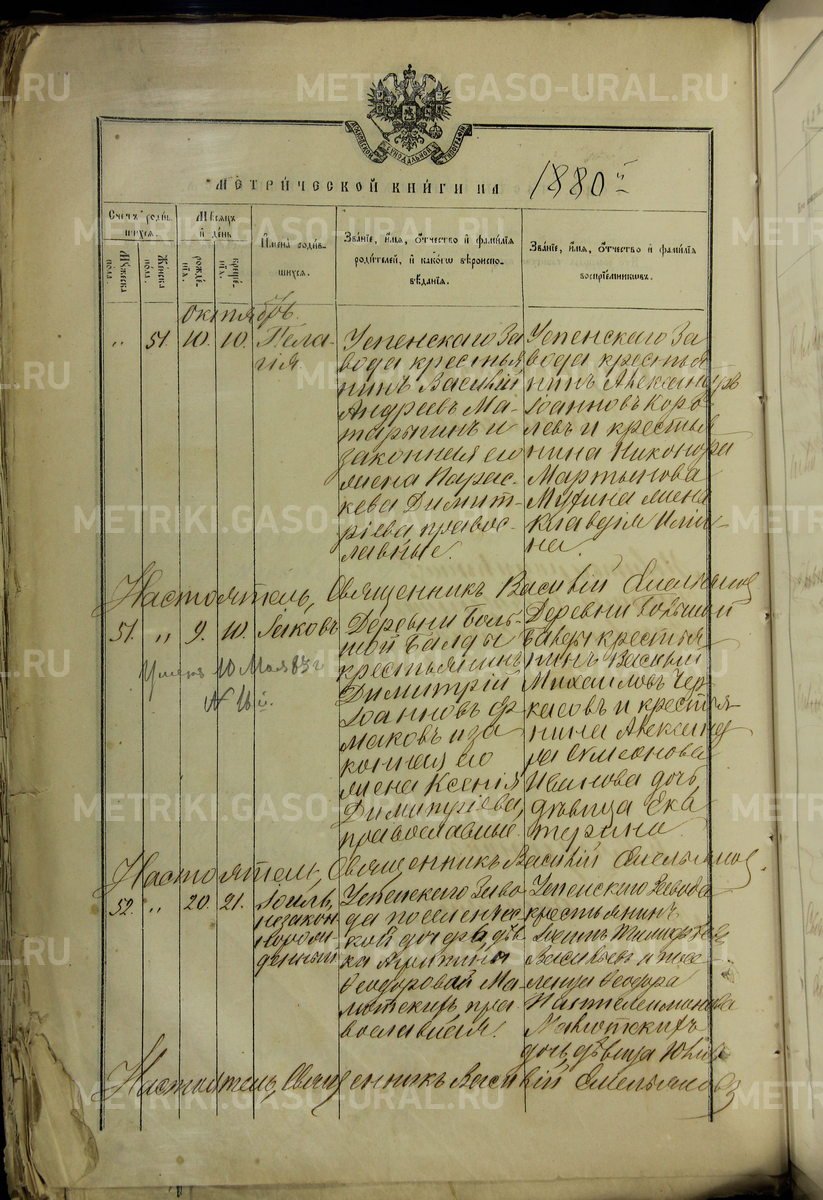 МОСКОВСКОЙ СѴНОДАЛЬНОЙ ТИПОГРАФІИ
МЕТРИ́ЧЕСКОЙ КНИ́ГИ НА 1880й
Счетъ роди́вшихся.
Му́жеска пола.
Же́нска пола.
Мѣсяцъ и де́нь
рожде́нїѧ.
креще́нїѧ.
И́мена роди́вшихся.
Зва́нїе, и́мѧ, ѻ҆́тчество и҆ фами́лїѧ родителей, и҆ како́гѡ вѣроисповѣ́данїѧ.
Зва́нїе, и́мѧ, ѻ҆́тчество и҆ фами́лїѧ воспрїе́мникѡвъ.
Октябрь.
„ 51 10. 10. Пела-
гія.
Успенскаго За
вода крестья
нинъ Василій
Андреевъ Ма-
тарыгинъ и
законная его
жена Парас-
кева Димит-
ріева правос-
лавные.
Успенскаго За
вода крестья
нинъ Александръ
Іоанновъ Коро-
левъ и крестья
нина Никонора
Мартынова
жена
Клавдія Ильи-
на.
Настоятель, Священникъ Василій Емельяновъ
51. „ 9. 10. Іаковъ
Умеръ 10 Мая 83 г
№ 16й.
Деревни Боль-
шой Балды
крестьянинъ
Димитрій
Іоанновъ Ер-
маковъ и за
конная его
жена Ксенія
Димитріева,
православные.
Деревни Большой
Балды крестья
нинъ Василій
Михаиловъ Чер-
касовъ и крестья-
нина Александ
ра Симеонова
Иванова дочь
дѣвица Ека
терина.
Настоятель, Священникъ Василій Емельяновъ.
52. „ 20. 21. Іоиль,
незакон
норож
денный
Успенскаго Заво
да поселенчес
кой дочери, дѣв
ка Агрипины
Ѳеодоровой Ма-
пра
вославная.
Успенскаго Завода
крестьянинъ
Васильевъ и
Ѳеодора
Пантелеимонова
дочь, дѣвица Юлія
Настоятель, Священникъ Василій Емельяновъ
METRIKI.GASO-URAL.RU